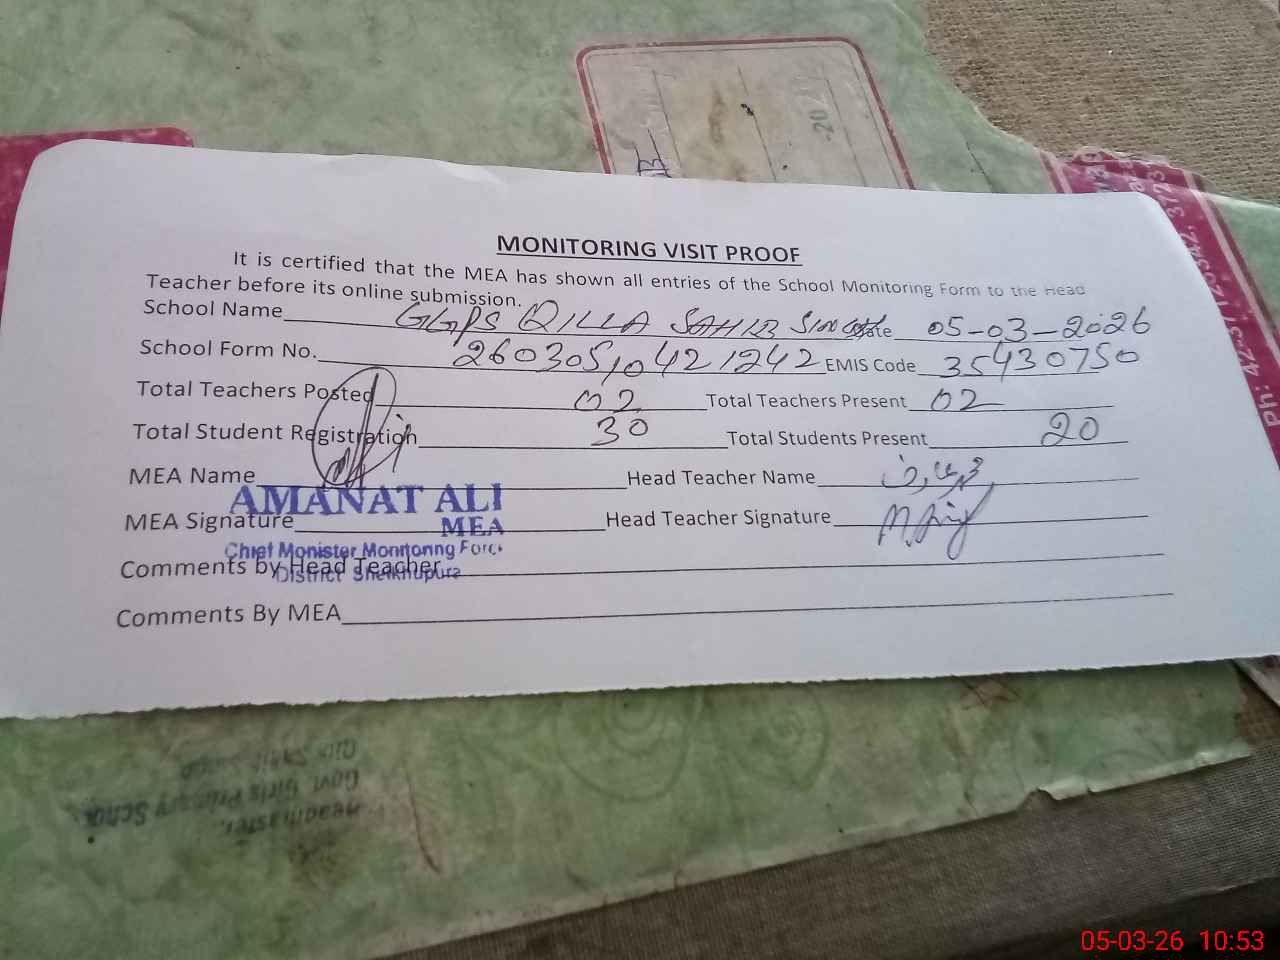 MONITORING VISIT PROOF
It is certified that the MEA has shown all entries of the School Monitoring Form to the Head
Teacher before its online submission.
School Name GGPS QILLA SAHIB SINGH Date 05-03-2026
School Form No. 260305,0421242 EMIS Code 35430750
Total Teachers Posted 02 Total Teachers Present 02
Total Student Registration 30 Total Students Present 20
MEA Name Head Teacher Name
AMANAT ALI
MEA Signature MEA Head Teacher Signature
Chief Monister Monitoring Force
Comments by Head Teacher
District Sheikhupura
Comments By MEA
Headmaster,
Govt Girls Primary School
20
05-03-26 10:53